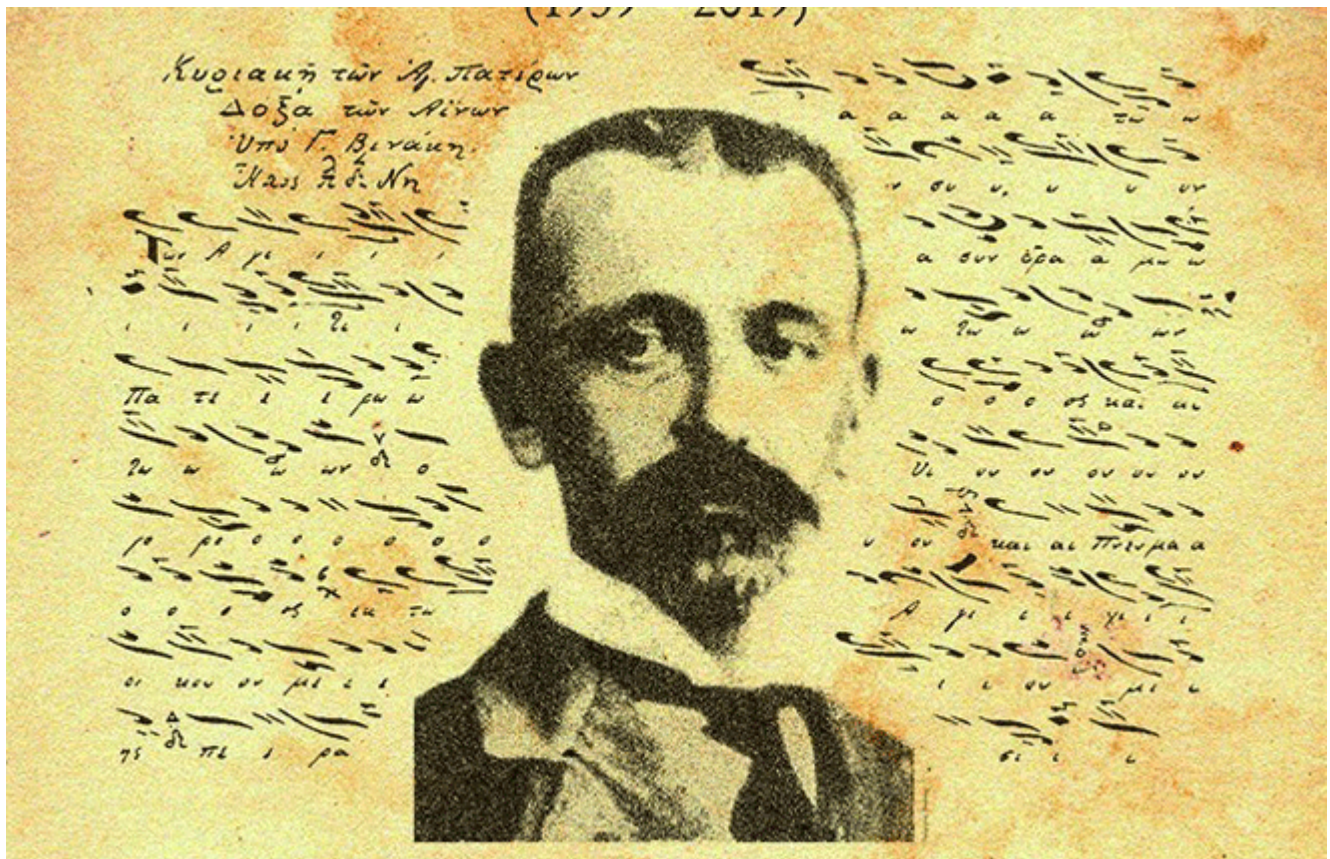 (1939 - 2019)
Κυριακή τῶν Ἁγ. Πατέρων
Δόξα τῶν Αἴνων
Ὑπό Γ. Βινάκη.
Ἦχος πλ δ Νη
Τῶν Α γι ι ι ι
ι ι ι ι ι
Πα τε ε ε ρω ω
τω ω ω ων ο
ρο ρο ο ο ο ο ο ο
ο ο ο ος εκ τω
οι κου ου με ε ε
πε ε ρα
α α α α α τω ω
ν συ υ υ υ υν
α συν δρα α μω ω
ω τω ω ω ων
ο ο ο ος και αι
Υι ου ου ου ου ου
υ ου και αι Πνευμα α
Α γι ι ι γι ι ι
ι ι ου με ε
σι ι ι